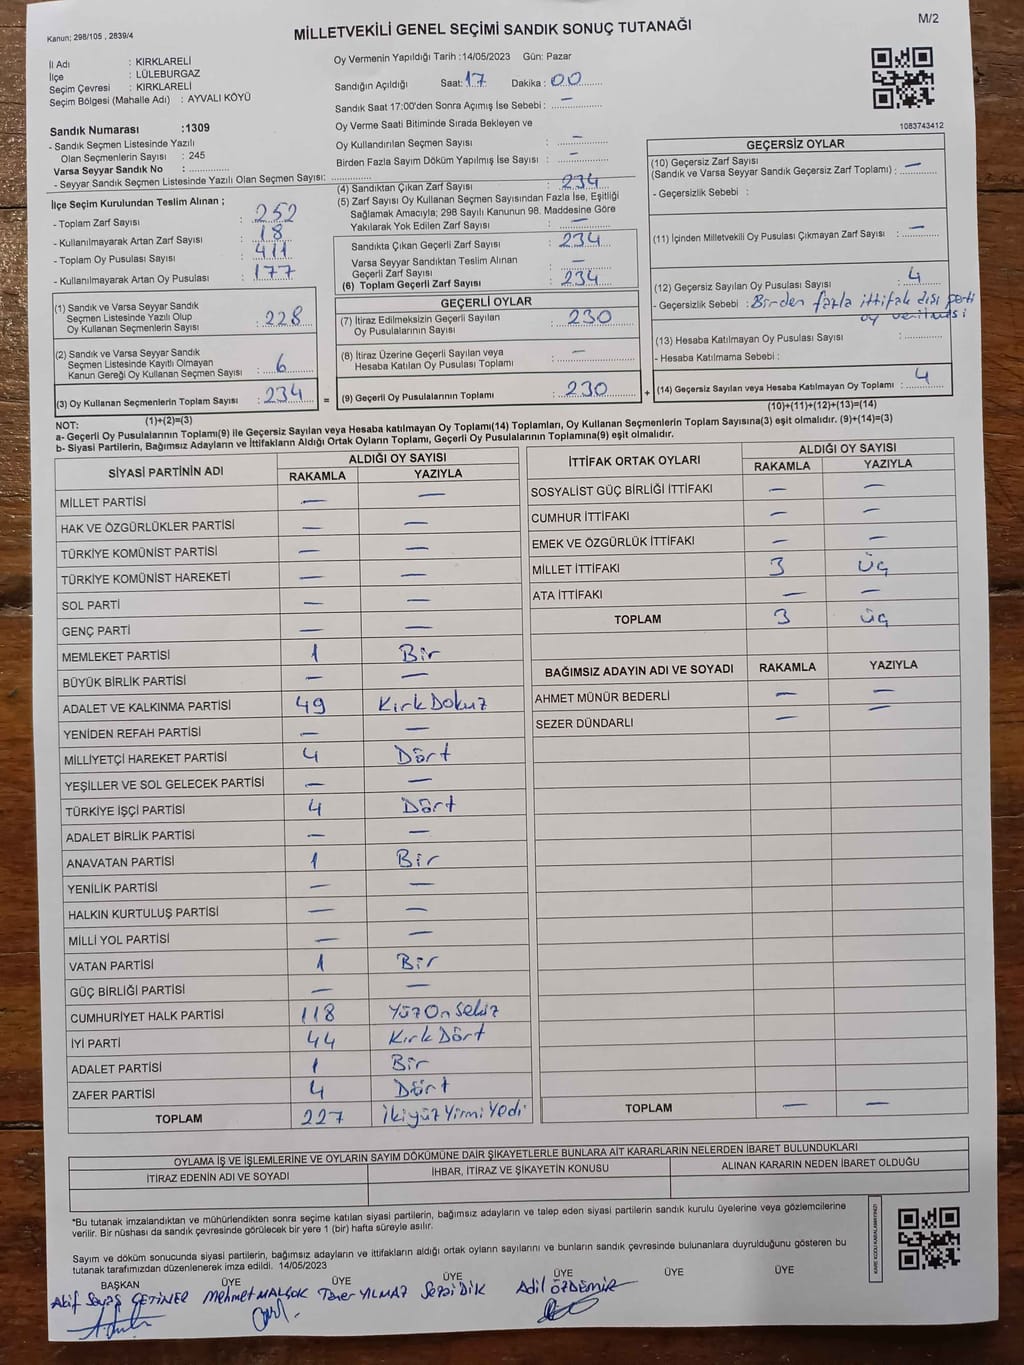 Kanun; 298/105 , 2839/4
MİLLETVEKİLİ GENEL SEÇİMİ SANDIK SONUÇ TUTANAĞI
M/2
İl Adı : KIRKLARELİ
İlçe : LÜLEBURGAZ
Seçim Çevresi : KIRKLARELİ
Seçim Bölgesi (Mahalle Adı) : AYVALI KÖYÜ
Sandık Numarası :1309
- Sandık Seçmen Listesinde Yazılı
Olan Seçmenlerin Sayısı : 245
Varsa Seyyar Sandık No :
- Seyyar Sandık Seçmen Listesinde Yazılı Olan Seçmen Sayısı:
Oy Vermenin Yapıldığı Tarih :14/05/2023 Gün: Pazar
Sandığın Açıldığı Saat: 17 Dakika : 00
Sandık Saat 17:00'den Sonra Açımış İse Sebebi : —
Oy Verme Saati Bitiminde Sırada Bekleyen ve
Oy Kullandırılan Seçmen Sayısı : —
Birden Fazla Sayım Döküm Yapılmış İse Sayısı : —
1083743412
İlçe Seçim Kurulundan Teslim Alınan ;
- Toplam Zarf Sayısı : 252
- Kullanılmayarak Artan Zarf Sayısı : 18
- Toplam Oy Pusulası Sayısı : 411
- Kullanılmayarak Artan Oy Pusulası : 177
(1) Sandık ve Varsa Seyyar Sandık
Seçmen Listesinde Yazılı Olup
Oy Kullanan Seçmenlerin Sayısı : 228
(2) Sandık ve Varsa Seyyar Sandık
Seçmen Listesinde Kayıtlı Olmayan
Kanun Gereği Oy Kullanan Seçmen Sayısı : 6
(3) Oy Kullanan Seçmenlerin Toplam Sayısı : 234
(1)+(2)=(3)
(4) Sandıktan Çıkan Zarf Sayısı : 234
(5) Zarf Sayısı Oy Kullanan Seçmen Sayısından Fazla İse, Eşitliği
Sağlamak Amacıyla; 298 Sayılı Kanunun 98. Maddesine Göre
Yakılarak Yok Edilen Zarf Sayısı : —
Sandıkta Çıkan Geçerli Zarf Sayısı : 234
Varsa Seyyar Sandıktan Teslim Alınan
Geçerli Zarf Sayısı : —
(6) Toplam Geçerli Zarf Sayısı : 234
GEÇERLİ OYLAR
(7) İtiraz Edilmeksizin Geçerli Sayılan
Oy Pusulalarının Sayısı : 230
(8) İtiraz Üzerine Geçerli Sayılan veya
Hesaba Katılan Oy Pusulası Toplamı : —
= (9) Geçerli Oy Pusulalarının Toplamı : 230
GEÇERSİZ OYLAR
(10) Geçersiz Zarf Sayısı
(Sandık ve Varsa Seyyar Sandık Geçersiz Zarf Toplamı) : —
- Geçersizlik Sebebi :
(11) İçinden Milletvekili Oy Pusulası Çıkmayan Zarf Sayısı : —
(12) Geçersiz Sayılan Oy Pusulası Sayısı : 4
- Geçersizlik Sebebi : Birden fazla ittifak dışı parti
oy verilmesi
(13) Hesaba Katılmayan Oy Pusulası Sayısı :
- Hesaba Katılmama Sebebi :
+ (14) Geçersiz Sayılan veya Hesaba Katılmayan Oy Toplamı : 4
(10)+(11)+(12)+(13)=(14)
NOT:
a- Geçerli Oy Pusulalarının Toplamı(9) ile Geçersiz Sayılan veya Hesaba katılmayan Oy Toplamı(14) Toplamları, Oy Kullanan Seçmenlerin Toplam Sayısına(3) eşit olmalıdır. (9)+(14)=(3)
b- Siyasi Partilerin, Bağımsız Adayların ve İttifakların Aldığı Ortak Oyların Toplamı, Geçerli Oy Pusulalarının Toplamına(9) eşit olmalıdır.
SİYASİ PARTİNİN ADI ALDIĞI OY SAYISI
RAKAMLA YAZIYLA
MİLLET PARTİSİ — —
HAK VE ÖZGÜRLÜKLER PARTİSİ — —
TÜRKİYE KOMÜNİST PARTİSİ — —
TÜRKİYE KOMÜNİST HAREKETİ — —
SOL PARTİ — —
GENÇ PARTİ — —
MEMLEKET PARTİSİ 1 Bir
BÜYÜK BİRLİK PARTİSİ — —
ADALET VE KALKINMA PARTİSİ 49 KırkDokuz
YENİDEN REFAH PARTİSİ — —
MİLLİYETÇİ HAREKET PARTİSİ 4 Dört
YEŞİLLER VE SOL GELECEK PARTİSİ — —
TÜRKİYE İŞÇİ PARTİSİ 4 Dört
ADALET BİRLİK PARTİSİ — —
ANAVATAN PARTİSİ 1 Bir
YENİLİK PARTİSİ — —
HALKIN KURTULUŞ PARTİSİ — —
MİLLİ YOL PARTİSİ — —
VATAN PARTİSİ 1 Bir
GÜÇ BİRLİĞİ PARTİSİ — —
CUMHURİYET HALK PARTİSİ 118 Yüz On Sekiz
İYİ PARTİ 44 Kırk Dört
ADALET PARTİSİ 1 Bir
ZAFER PARTİSİ 4 Dört
TOPLAM 227 İkiyüz Yirmi Yedi
İTTİFAK ORTAK OYLARI ALDIĞI OY SAYISI
RAKAMLA YAZIYLA
SOSYALİST GÜÇ BİRLİĞİ İTTİFAKI — —
CUMHUR İTTİFAKI — —
EMEK VE ÖZGÜRLÜK İTTİFAKI — —
MİLLET İTTİFAKI 3 Üç
ATA İTTİFAKI — —
TOPLAM 3 üç
BAĞIMSIZ ADAYIN ADI VE SOYADI RAKAMLA YAZIYLA
AHMET MÜNÜR BEDERLİ — —
SEZER DÜNDARLI — —
TOPLAM — —
OYLAMA İŞ VE İŞLEMLERİNE VE OYLARIN SAYIM DÖKÜMÜNE DAİR ŞİKAYETLERLE BUNLARA AİT KARARLARIN NELERDEN İBARET BULUNDUKLARI
İTİRAZ EDENİN ADI VE SOYADI İHBAR, İTİRAZ VE ŞİKAYETİN KONUSU ALINAN KARARIN NEDEN İBARET OLDUĞU
*Bu tutanak imzalandıktan ve mühürlendikten sonra seçime katılan siyasi partilerin, bağımsız adayların ve talep eden siyasi partilerin sandık kurulu üyelerine veya gözlemcilerine
verilir. Bir nüshası da sandık çevresinde görülecek bir yere 1 (bir) hafta süreyle asılır.
Sayım ve döküm sonucunda siyasi partilerin, bağımsız adayların ve ittifakların aldığı ortak oyların sayılarını ve bunların sandık çevresinde bulunanlara duyrulduğunu gösteren bu
tutanak tarafımızdan düzenlenerek imza edildi. 14/05/2023
KARE KODU KARALAMAYINIZ!
BAŞKAN ÜYE ÜYE ÜYE ÜYE ÜYE ÜYE
Akif Savaş ÇETİNER Mehmet MALÇOK Taner YILMAZ Sezai DİK Adil ÖZDEMİR